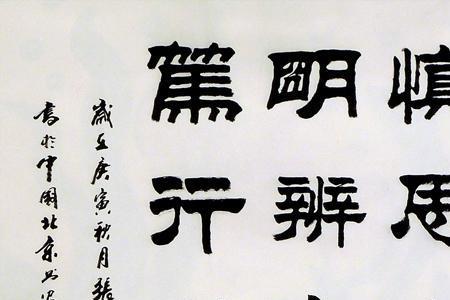 慎思
明辨
篤行
歲在庚寅秋月張
書於中國北京